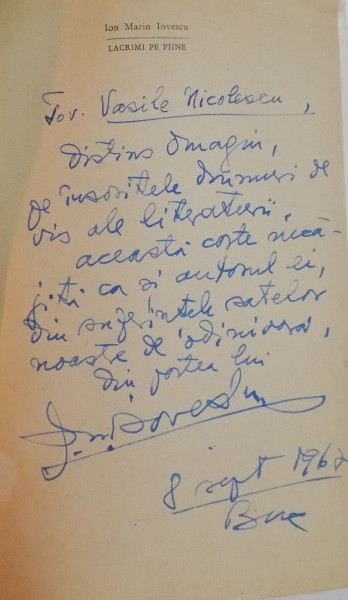 Ion Marin Iovescu
LACRIMI PE PIINE
Tov. Vasile Nicolescu,
Distins Omagiu,
pe însoritele drumuri de
vis ale literaturii,
această carte necă-
jită ca și autorul ei,
din suferințele satelor
noastre de odinioară,
din partea lui
I. M. Iovescu
8 sept 1967
Buc